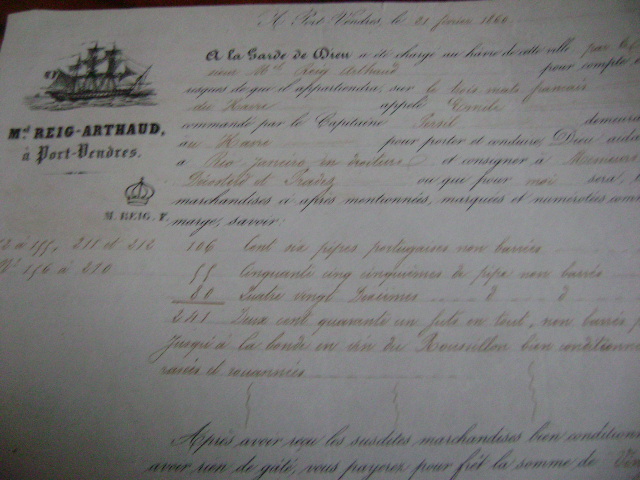 A Port Vendres, le 21 février 1860
A la Garde de Dieu a été chargé au havre de cette ville par
mem Mel Reig Arthaud pour compte
risques de qui il appartiendra, sur le trois mats français
du Havre appelé
commandé par le Capitaine Persil demeura
au Havre pour porter et conduire, Dieu aida
à Rio Janeiro, in droiture et consigner à Messieurs
et Pradez ou que pour moi sera,
marchandises ci après mentionnées, marquées et numérotées comm
marge, savoir:
Mel REIG-ARTHAUD,
à Port-Vendres.
M. REIG. F.
à 155, 211 et 212 106 Cent six pipes portugaises non barrées
No 156 à 210 55 Cinquante cinq cinquièmes de pipe non barrés
80 Quatre vingt Dixièmes d d
241 Deux cent quarante un futs en tout, non barrés
jusqu'à la bonde en vin du Roussillon bien conditionné
et rouannés
Après avoir reçu les susdites marchandises bien condition
avoir rien de gâté, vous payerez pour frêt la somme de